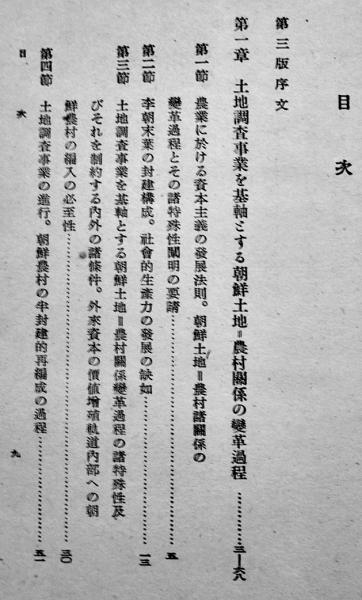 目次
第三版序文
第一章 土地調査事業を基軸とする朝鮮土地=農村關係の變革過程…………三—六八
第一節 農業に於ける資本主義の發展法則。朝鮮土地=農村諸關係の
變革過程とその諸特殊性闡明の要請……………………五
第二節 李朝末葉の封建構成。社會的生産力の發展の缺如……………………一三
第三節 土地調査事業を基軸とする朝鮮土地=農村關係變革過程の諸特殊性及
びそれを制約する内外の諸條件。外來資本の價値増殖軌道内部への朝
鮮農村の編入の必至性……………………三〇
第四節 土地調査事業の進行。朝鮮農村の半封建的再編成の過程……………………五一
目次
九